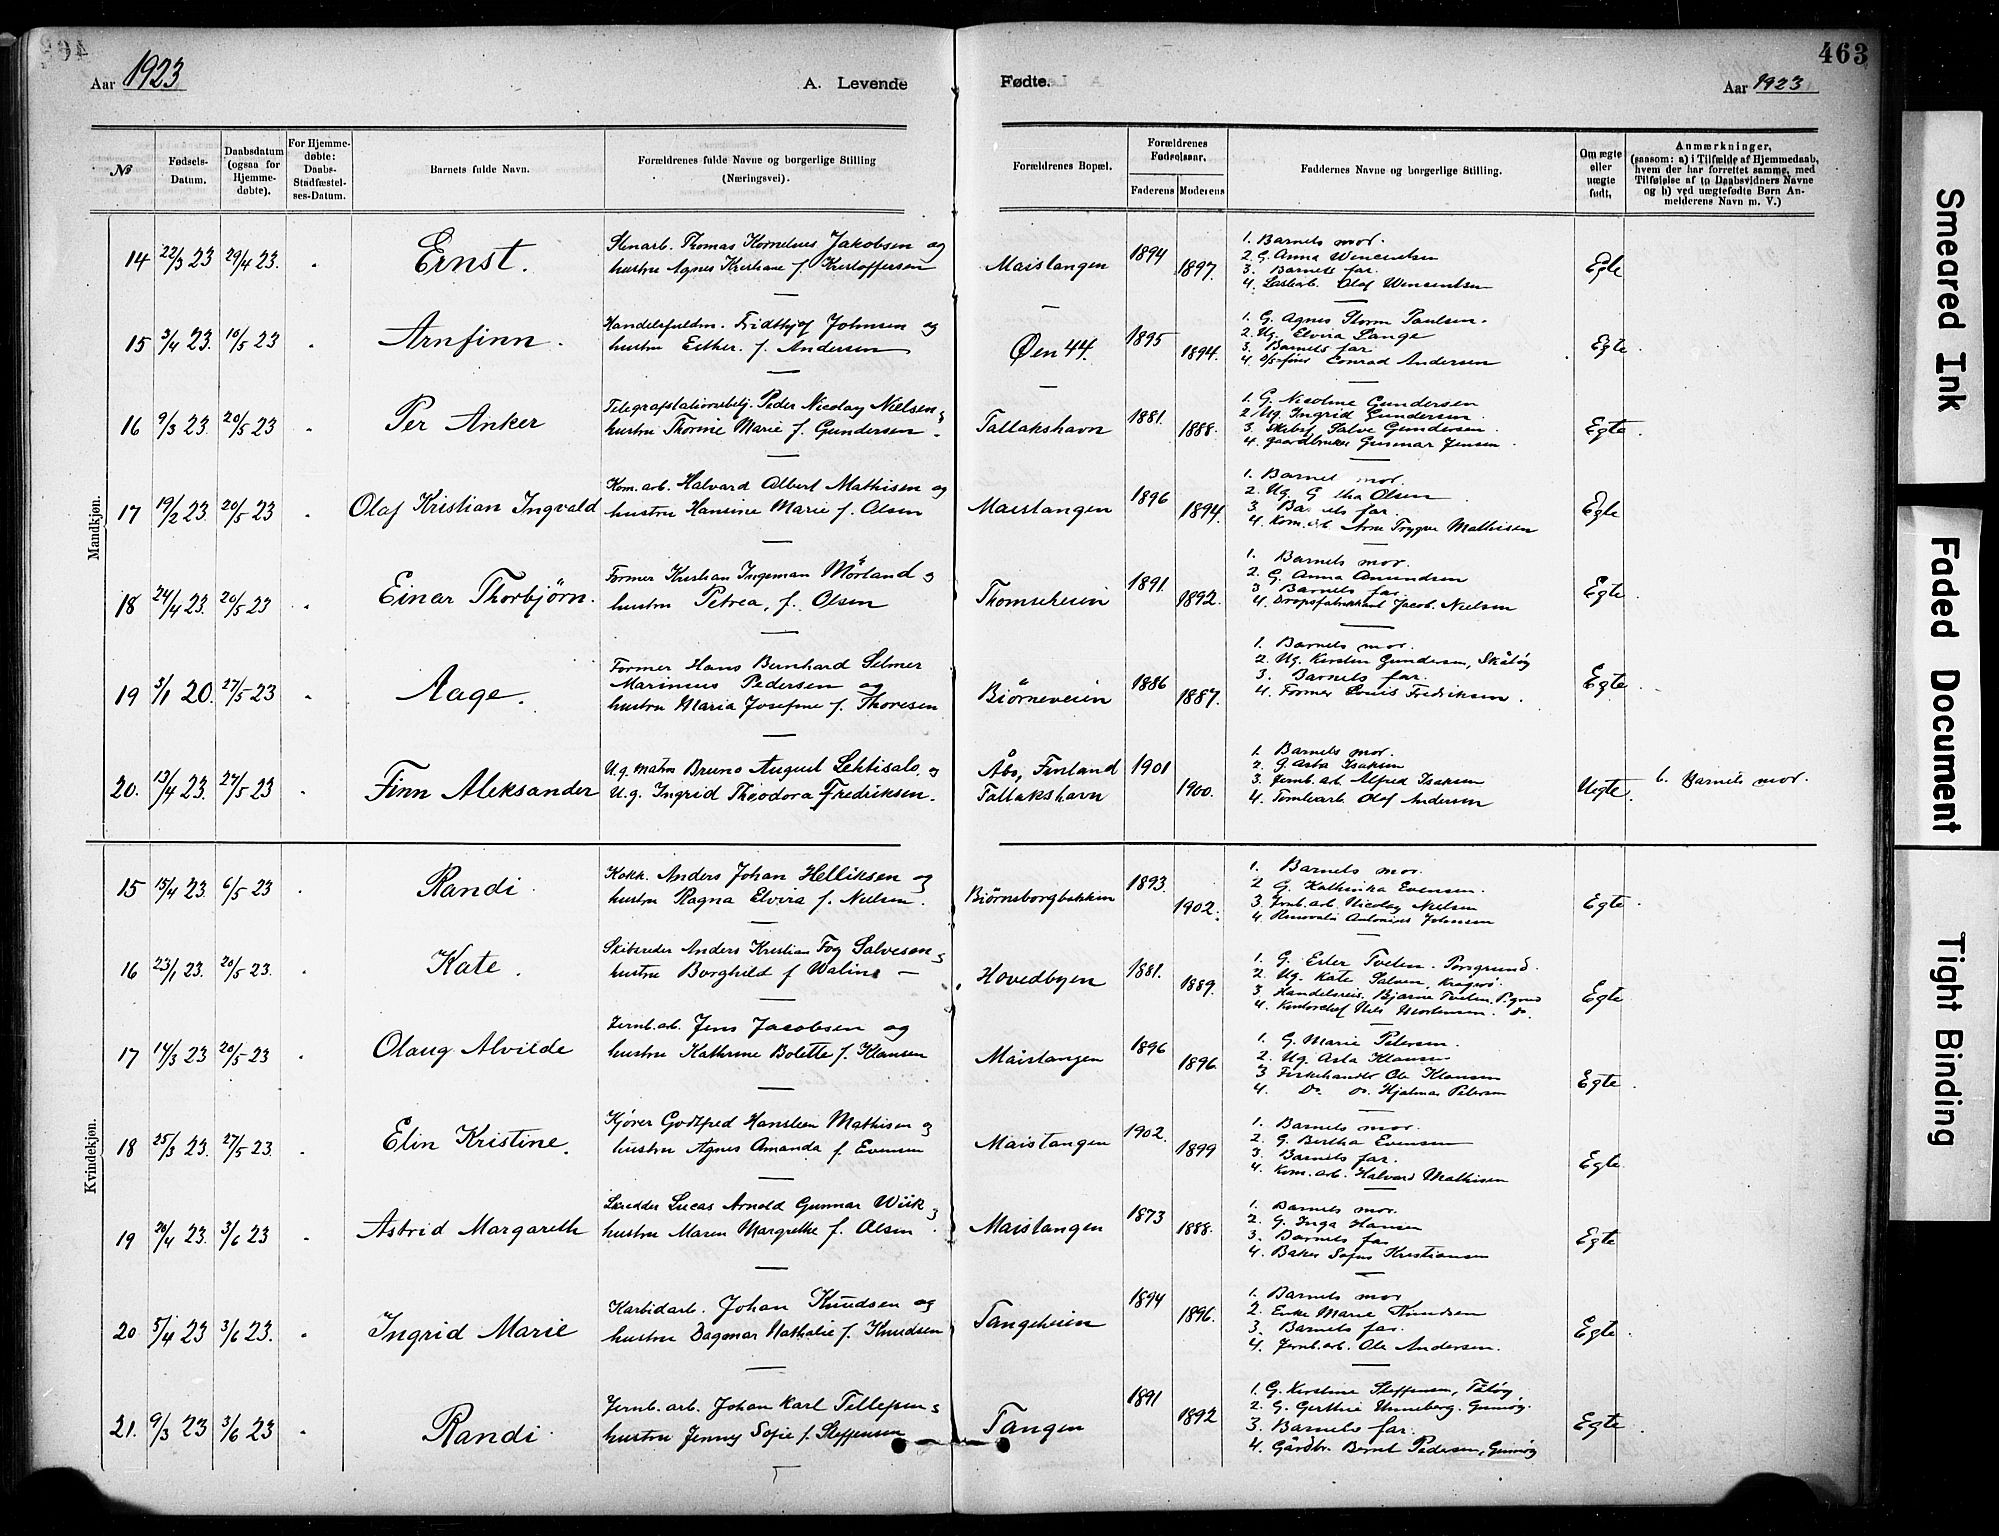 463
Aar 1923
A. Levende
Fødte.
Aar 1923
№
Fødsels-Datum.
Daabsdatum (ogsaa for Hjemme-døbte).
For Hjemme-døbte: Daabs-Stadfæstel-ses-Datum.
Barnets fulde Navn.
Forældrenes fulde Navne og borgerlige Stilling (Næringsvei).
Forældrenes Bopæl.
Forældrenes Fødselsaar.
Faderens
Moderens
Faddernes Navne og borgerlige Stilling.
Om ægte eller uægte født.
Anmærkninger,
(saasom: a) i Tilfælde af Hjemmedaab,
hvem der har forrettet samme, med
Tilføielse af to Daabsvidners Navne
og b) ved uægtefødte Børn An-
melderens Navn m. V.)
Mandkjøn.
14 22/3 23 29/4 23. Ernst.
Stenarb. Thomas Kornelius Jakobsen og
hustru Agnes Kristiane f. Kristoffersen
Maistangen 1894 1897.
1. Barnets mor.
2 G. Anna Wincentsen
3. Barnets far.
4. Lastearb. Olaf Wincentsen
Egte
15 3/4 23. 10/5 23 Arnfinn.
Handelsfuldm. Fridthjof Johnsen og
hustru Esther f. Andersen
Øen 44. 1895 1894.
1. G. Agnes Storm Paulsen.
2. Ug. Elvira Lange
3. Barnets far
4. Conrad Andersen
Egte
16 9/3 23. 20/5 23 Per Anker
Telegrafstationsbetj. Peder Nicolay Nielsen
hustru Thomine Marie f. Gundersen
Tallakshavn 1881. 1888.
1. G. Nicoline Gundersen
2. Ug. Ingrid Gundersen.
3. Skibsf. Salve Gundersen.
4. gaardbruker Gunnar Jensen.
Egte
17 19/2 23. 20/5 23 Olaf Kristian Ingvald
Kom. arb. Halvard Albert Mathisen og
hustru Hansine Marie f. Olsen
Maistangen 1896 1894.
1. Barnets mor.
2. Ug. Olsen
3. Barnets far.
4. Kom. arb. Arne Trygve Mathisen
Egte
18 24/4 23. 20/5 23 Einar Thorbjörn.
Former Kristian Ingeman Mörland og
hustru Petrea, f. Olsen
Thomseheien 1891. 1892.
1. Barnets mor.
2. G. Anna Amundsen
3. Barnets far.
4. Dropsfabrikkant Jacob Nielsen
Egte
19 3/1 20. 27/5 23 Aage.
Former Hans Bernhard Selmer
Marinius Pedersen og
hustru Maria Josefine f. Thoresen
Biörneveien 1886 1887.
1. Barnets mor.
2. Ug. Kirsten Gundersen, Skåtøy
3. Barnets far.
4. Former Louis Fredriksen.
Egte
20. 13/4 23. 27/5 23 Finn Aleksander
U.g. matros Bruno August Lehtisalo, og
U.g. Ingrid Theodora Fredriksen.
Åbo, Finland
Tallakshavn 1901 1900.
1. Barnets mor.
2. G. Asta Isaksen
3. Jernb. arb. Alfred Isaksen
4. Tomtearb. Olaf Andersen
Uegte. b. Barnets mor.
Kvindekjøn.
15 15/4 23. 6/5 23 Randi.
Kokk. Anders Johan Helliksen og
hustru Ragna Elvira f. Nielsen.
Biörnsborgbakken 1893. 1902.
1. Barnets mor.
2 G. Kathinka Evensen.
3. Jernb. arb. Nicolay Nielsen
4. Antonius Johnsen
Egte
16 23/1 23. 20/5 23. Kate.
Skibsreder Anders Kristian Fog Salvesen
hustru Borghild f
Hovedbyen 1881. 1889.
1. G. Ester Tveten. Porsgrund.
2. Ug. Kate Salvesen, Kragerø.
3. Handelsreis. Bjarne Tveten, P.grund
4. Kontorchef Nils Mortensen. Do.
Egte
17 14/3 23 20/5 23. Olaug Alvilde
Jernb. arb. Jens Jacobsen og
hustru Kathrine Bolette f. Klausen
Maistangen 1896 1896.
1. G. Marie Petersen.
2. Ug. Asta Klausen
3 Fiskehandler Ole Klausen
4. Do. Do. Hjalmar Petersen
Egte
18 25/3 23. 27/5 23. Elin Kristine.
Kjører Godtfred Hansteen Mathisen og
hustru Agnes Amanda f. Evensen
Maistangen 1902. 1899
1. Barnets mor.
2. G. Bertha Evensen
3. Barnets far.
4. Kom. arb. Halvard Mathisen
Egte
19 20/4 23. 3/6 23 Astrid Margareth
Skredder Lucas Arnold Gunnar Wiik
hustru Maren Margrethe f. Olsen
Maistangen 1873 1888.
1. Barnets mor.
2. G. Inga Hansen
3. Barnets far
4. Baker Sofus Kristiansen
Egte
20. 5/4 23 3/6 23. Ingrid Marie
Karbidarb. Johan Knudsen og
hustru Dagmar Nathalie f. Knudsen
Tangeheien 1894 1896.
1. Barnets mor
2. Enke Marie Knudsen
3. Barnets far.
4. Jernb. arb. Ole Andersen.
Egte
21. 9/3 23 3/6 23 Randi
Jernb. arb. Johan Karl Tellefsen
hustru Jenny Sofie f. Steffensen
Tangen 1891 1892
1. G. Kirstine Steffensen, Tåtøy
2. G. Gerthie Unneberg. Gumøy.
3. Barnets far.
4. Gårdbr. Bernt Pedersen, Gumøy
Egte
Smeared Ink
Faded Document
Tight Binding